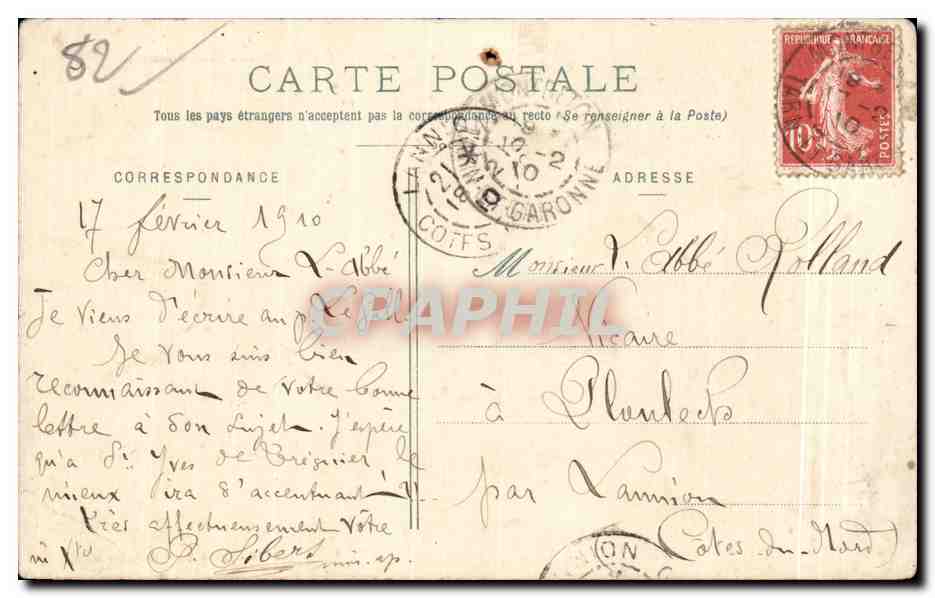 82
CARTE POSTALE
Tous les pays étrangers n'acceptent pas la correspondance au recto (Se renseigner à la Poste)
CORRESPONDANCE
17 février 1910
Cher Monsieur L'Abbé
Je viens d'écrire au p. Le Gall
Je vous suis bien
reconnaissant de votre bonne
lettre à son sujet. J'espère
qu'à St Yves de Tréguier le
mieux ira s'accentuant.
Très affectueusement vôtre
in Xto P. Sibers mis. ap.
ADRESSE
Monsieur L'Abbé Rolland
Vicaire
à Ploulech
par Lannion
Côtes-du-Nord
REPUBLIQUE FRANÇAISE
10c
POSTES
GARONNE
COTES
CPAPHIL